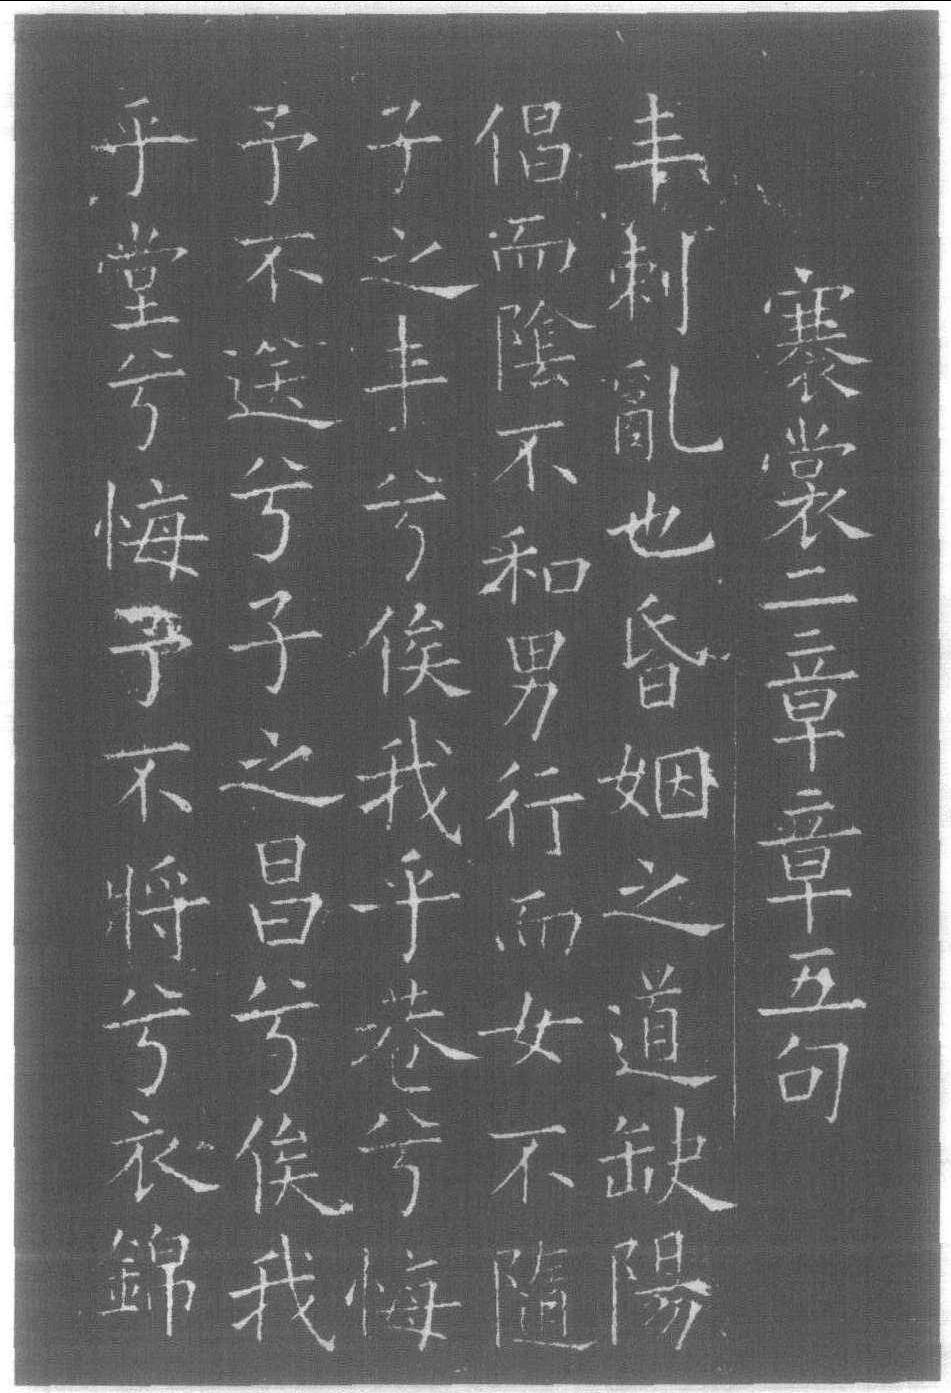 褰裳二章章五句
丰刺亂也昏姻之道缺陽
倡而陰不和男行而女不隨
子之丰兮俟我乎巷兮悔
予不送兮子之昌兮俟我
乎堂兮悔予不將兮衣錦